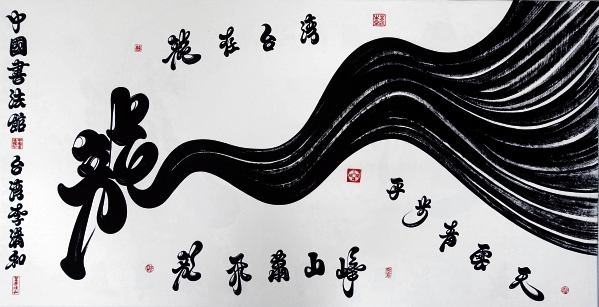 中國書法館
台湾李和
龍在台湾
龍
平步青雲天
龍飛山峰